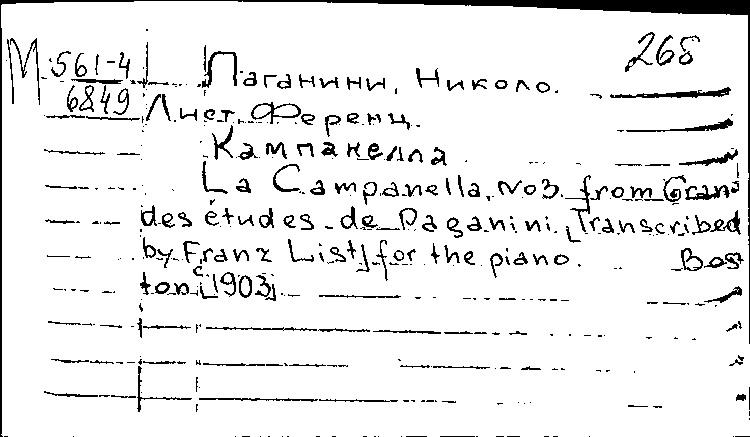 268
М 561-4
6849
Паганини, Николо.
Лист, Ференц.
Кампанелла.
La Campanella, No3. from Gran-
des études de Paganini. [Transcribed
by Franz List] for the piano. Bos-
ton, [c 1903].